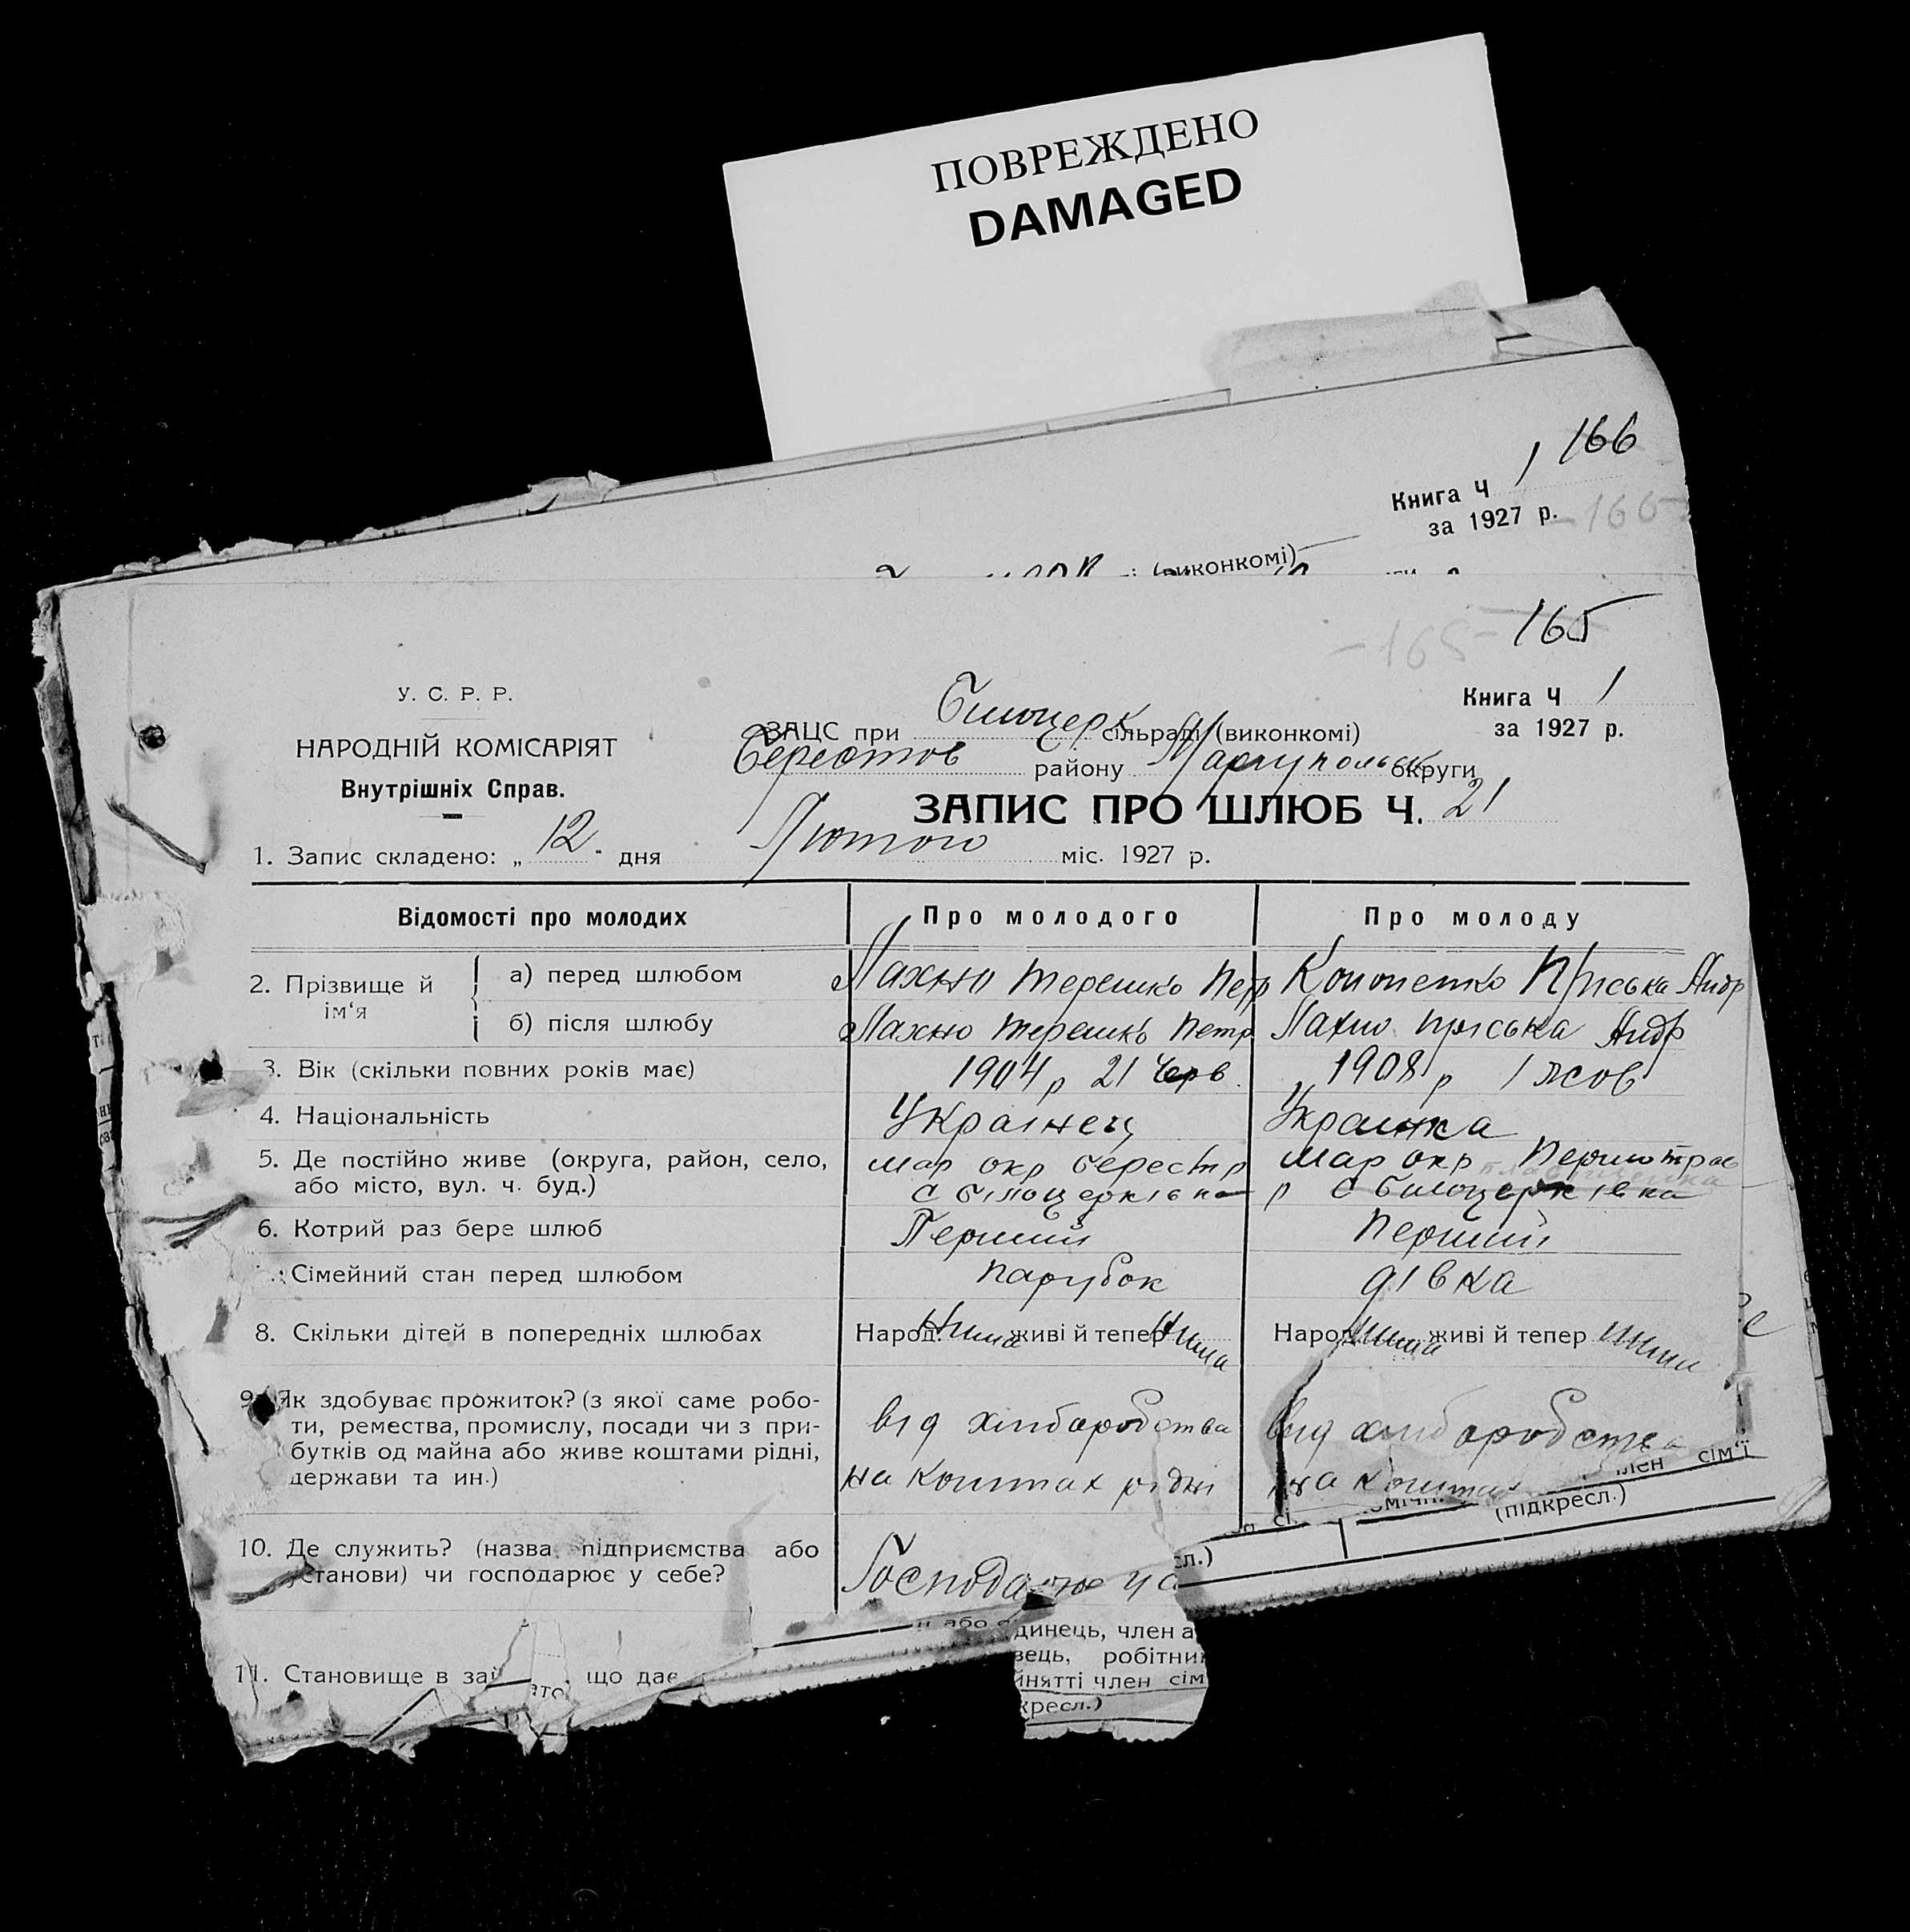 ПОВРЕЖДЕНО
DAMAGED
166
Книга Ч 1
за 1927 р. -166-
(виконкомі)
-165- 165
У. С. Р. Р.
НАРОДНІЙ КОМІСАРІЯТ
Внутрішніх Справ.
Книга Ч 1
за 1927 р.
ЗАЦС при Билоцерк сільраді (виконкомі)
Берестов району Маріупольськ округи
ЗАПИС ПРО ШЛЮБ Ч. 21
1. Запис складено: „ 12 " дня Лютого міс. 1927 р.
Відомості про молодих Про молодого Про молоду
2. Прізвище й ім'я
а) перед шлюбом Махно Терешко Петр Кононенко Пріська Андр
б) після шлюбу Махно Терешко Петр Махно Пріська Андр
3. Вік (скільки повних років має) 1904 р 21 Черв. 1908 р 1 жов
4. Національність Українец Украинка
5. Де постійно живе (округа, район, село, мар окр берест р мар окр
або місто, вул. ч. буд.) с білоцерківка р с билоцерківка
6. Котрий раз бере шлюб Перший Перший
Сімейний стан перед шлюбом парубок дівка
8. Скільки дітей в попередніх шлюбах Народ. Нима живі й тепер Нима Народ. нима живі й тепер нима
9. Як здобуває прожиток? (з якої саме робо-
ти, ремества, промислу, посади чи з при- від хлібаробства від хлібаробства
бутків од майна або живе коштами рідні,
держави та ин.) на коштах рідні на коштах
член сім'ї
(підкресл.)
10. Де служить? (назва підприємства або
установи) чи господарює у себе? Господарює у с
сл.)
н або
динець, член а
вець, робітник
йнятті член сім
кресл.)
11. Становище в за що дає